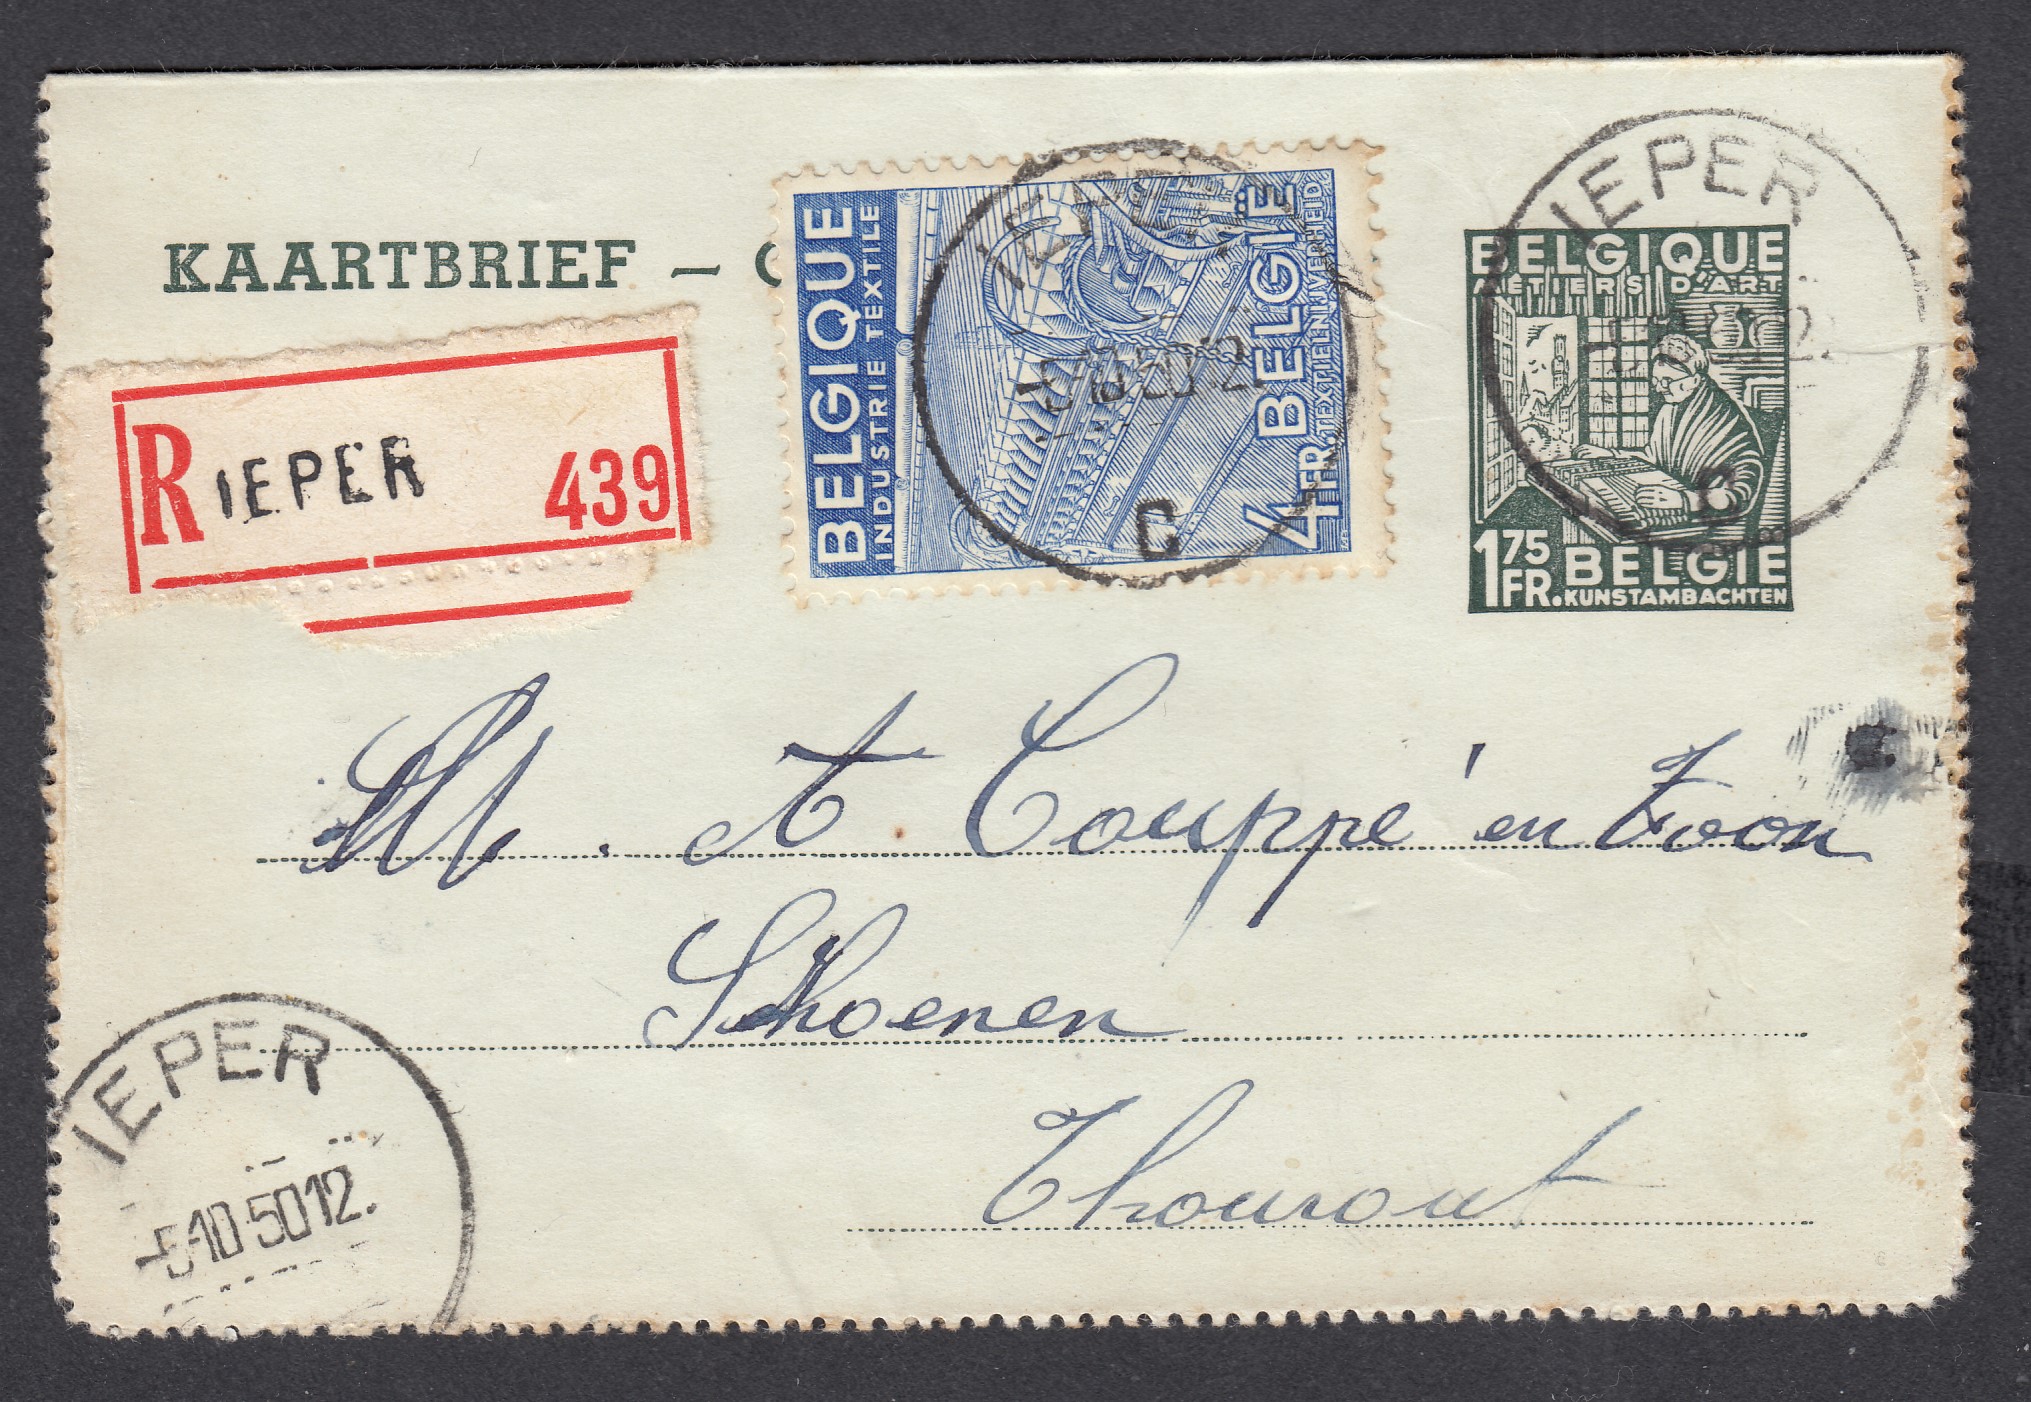 KAARTBRIEF – C
R IEPER 439
BELGIQUE
INDUSTRIE TEXTILE
BELGIE
4 FR. TEXTIELNIJVERHEID
IEPER
-5-10-50 12
C
IEPER
BELGIQUE
METIERS D'ART
C
1 75 FR. BELGIE
KUNSTAMBACHTEN
M. A. Couppé en Zoon
Schoenen
Thourout
IEPER
-5-10 50 12.